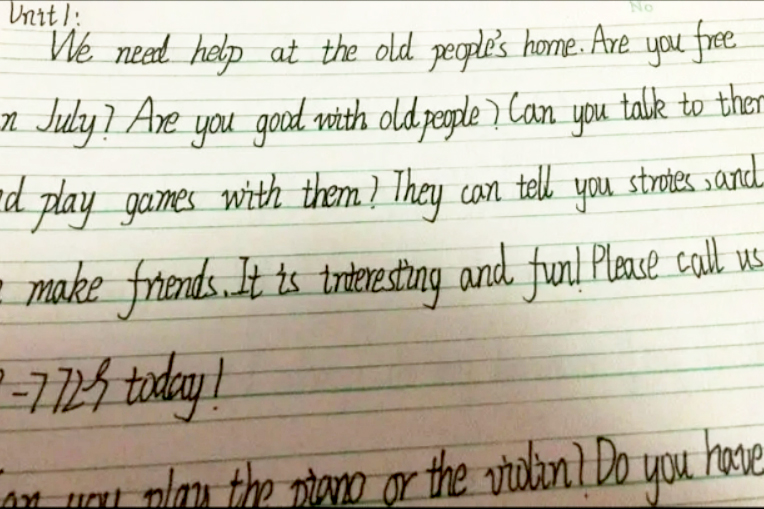 No
Unit 1:
We need help at the old people's home. Are you free
n July? Are you good with old people? Can you talk to them
d play games with them? They can tell you stroies, and
make friends. It is interesting and fun! Please call us
-7725 today!
an you play the piano or the violin? Do you have